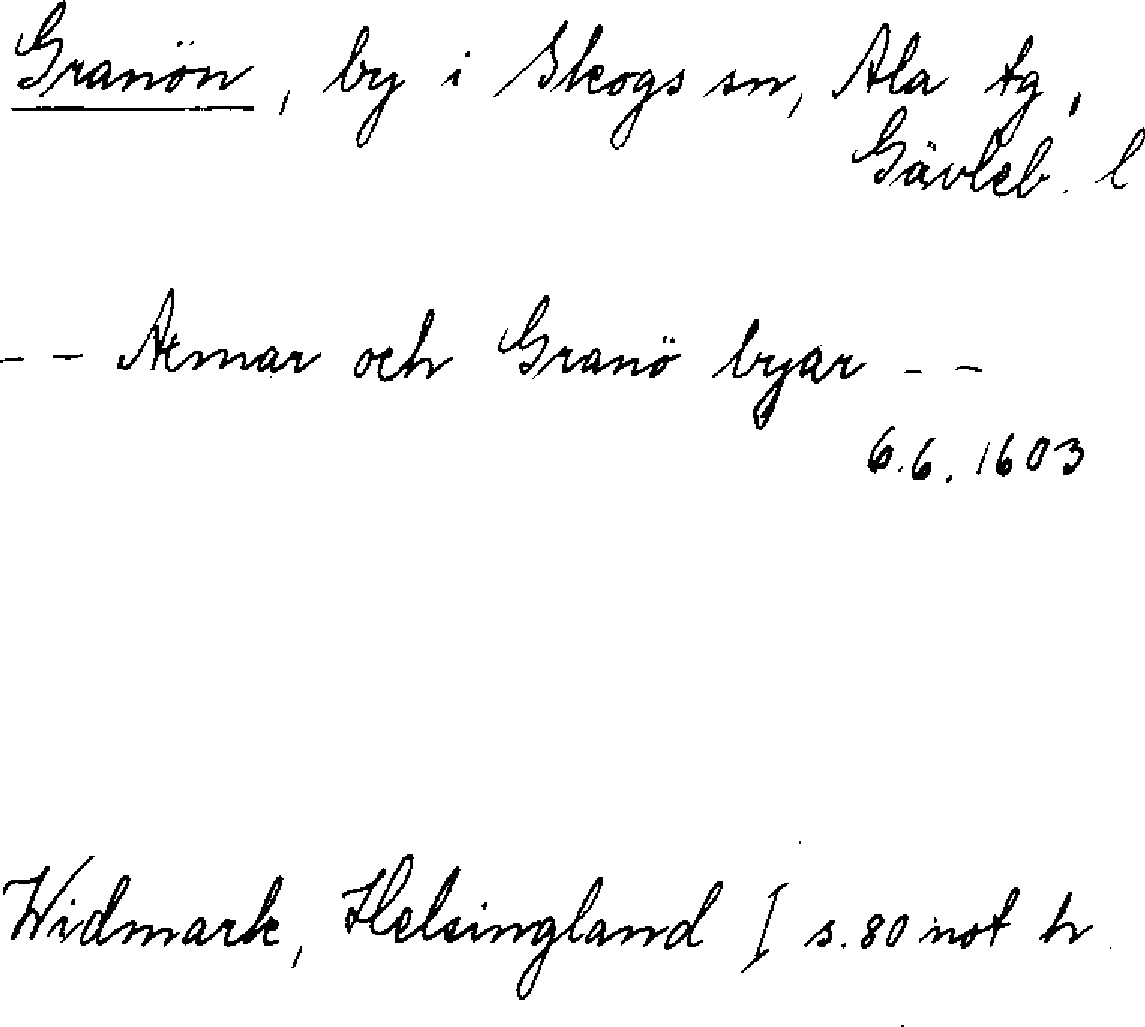 Granön, by i Skogs sn, Ala tg,
Gävleb. l
-- Atmar och Granö byar --
6.6. 1603
Widmark, Helsingland I s.80 not h